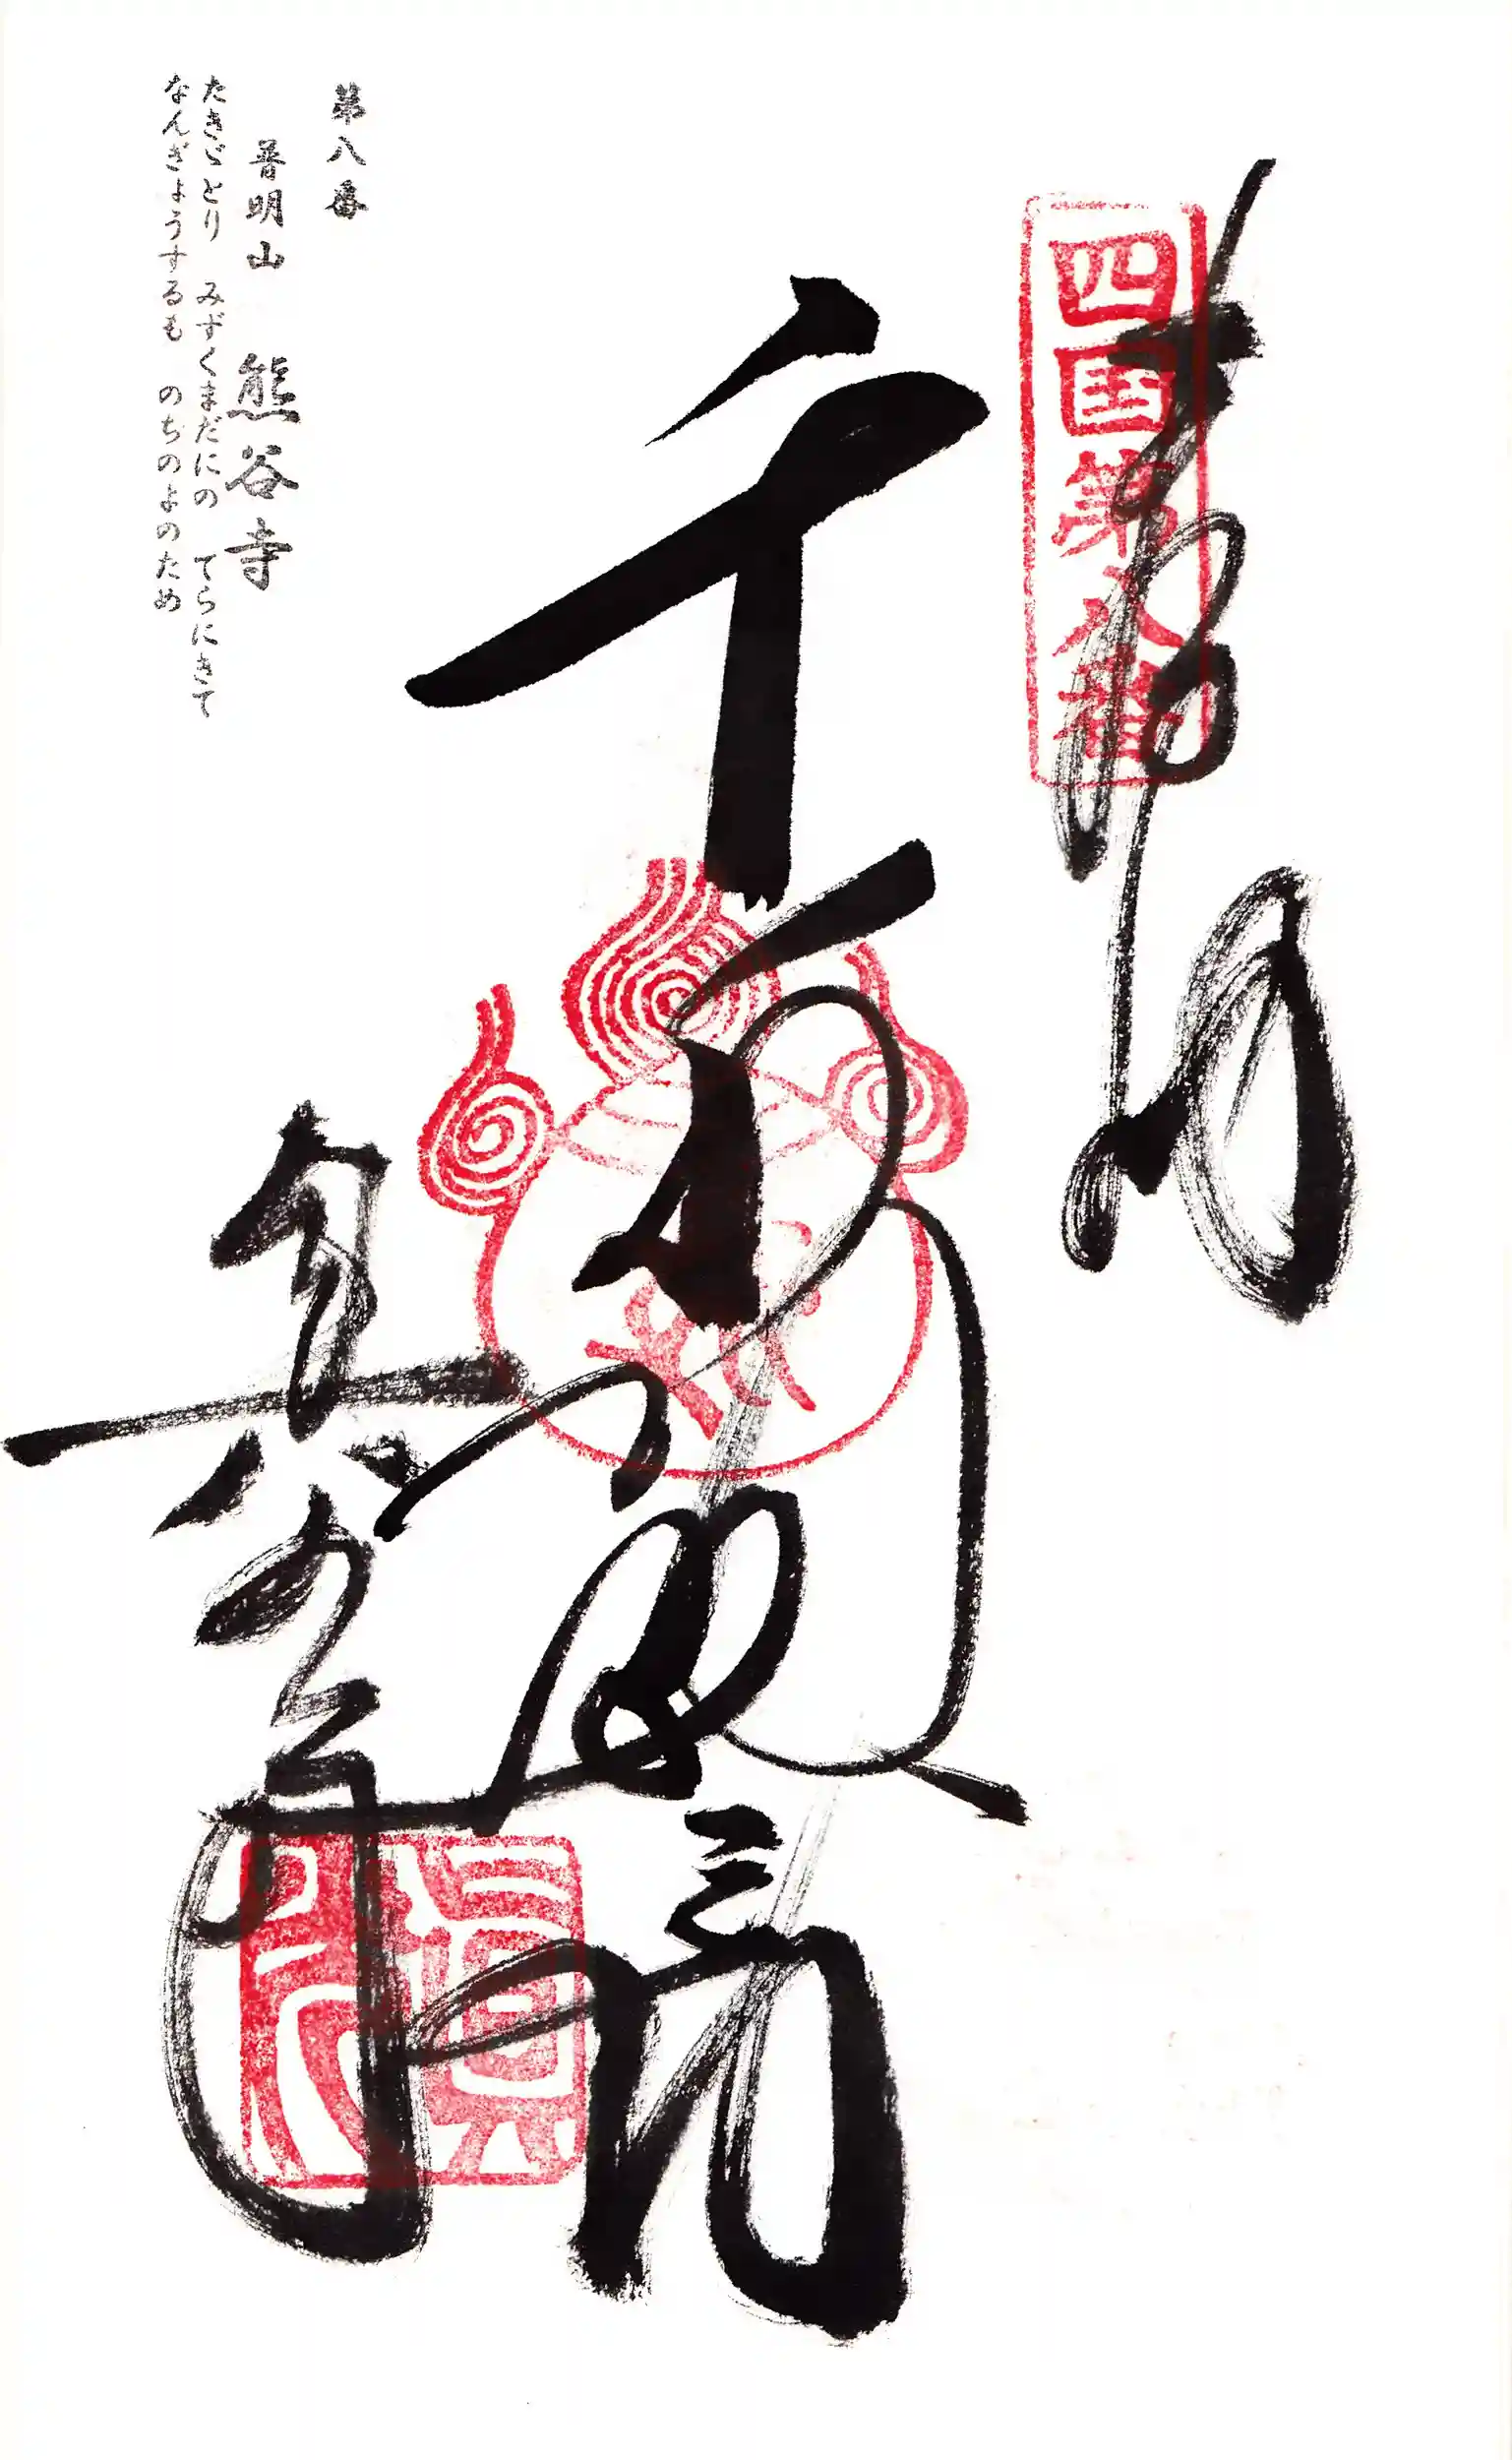 奉納
四国第八番
千手大悲閣
熊谷寺
第八番
普明山 熊谷寺
たきゞとり みずくまだにの てらにきて
なんぎょうするも のちのよのため